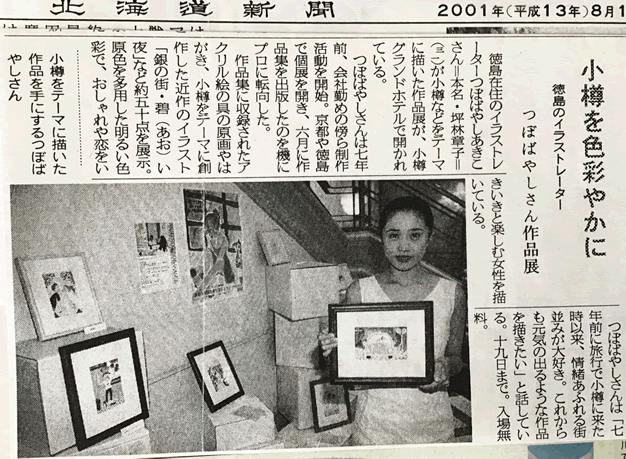 北海道新聞
2001年(平成13年)8月1
小樽を色彩やかに
徳島のイラストレーター
つぼばやしさん作品展
徳島在住のイラストレ
ーターつぼばやしあきこ
さん＝本名・坪林章子＝
が小樽などをテーマ
に描いた作品展が、小樽
グランドホテルで開かれ
ている。
つぼばやしさんは七年
前、会社勤めの傍ら制作
活動を開始。京都や徳島
で個展を開き、六月に作
品集を出版したのを機に
プロに転向した。
作品集に収録されたア
クリル絵の具の原画やは
がき、小樽をテーマに創
作した近作のイラスト
「銀の街・碧（あお）い
夜」など約五十点を展示。
原色を多用した明るい色
彩で、おしゃれや恋をい
きいきと楽しむ女性を描
いている。
つぼばやしさんは「七
年前に旅行で小樽に来た
時以来、情緒あふれる街
並みが大好き。これから
も元気の出るような作品
を描きたい」と話してい
る。十九日まで。入場無
料。
小樽をテーマに描いた
作品を手にするつぼば
やしさん